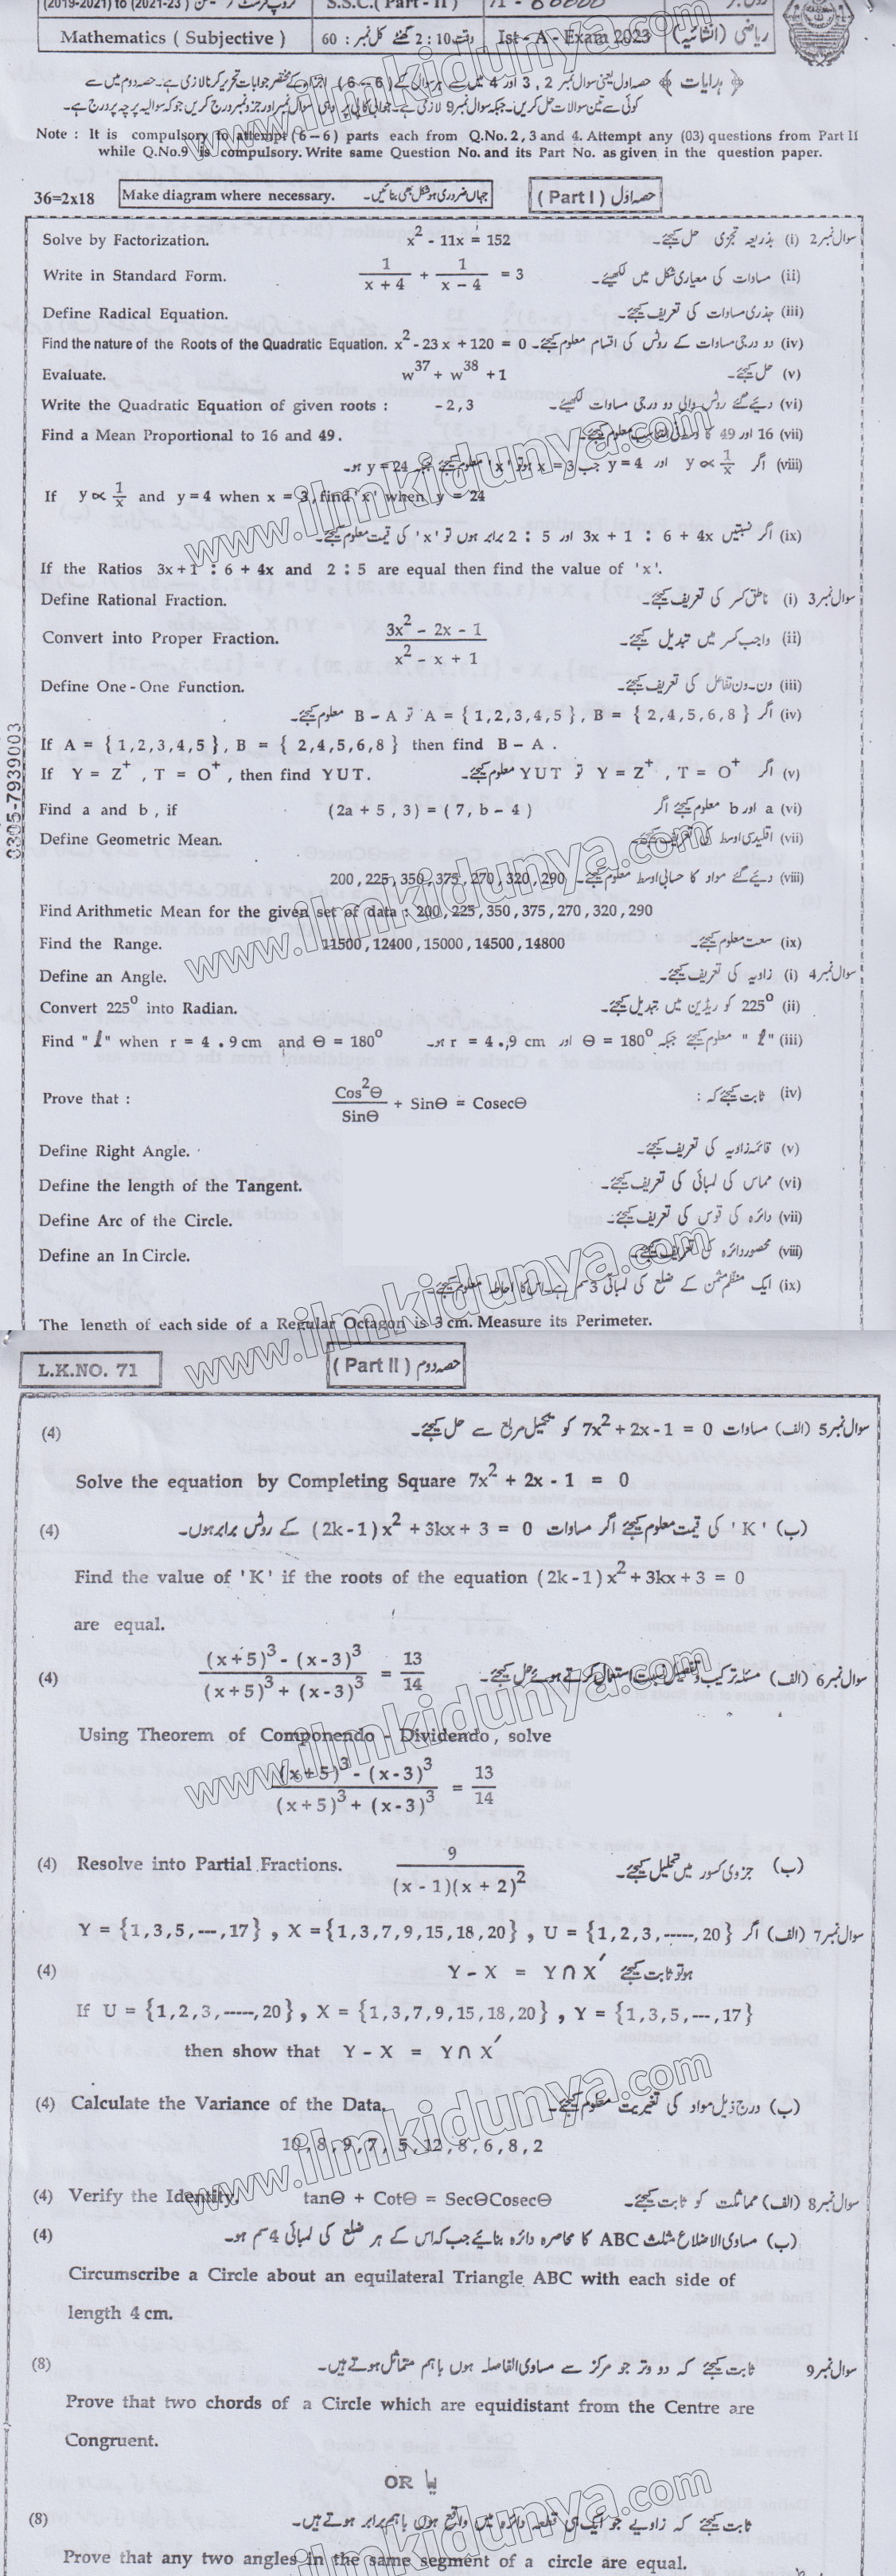 (2019-2021) to (2021-23) S.S.C.(Part - II)
Mathematics ( Subjective ) وقت 2:10 گھنٹے کل نمبر : 60 Ist - A - Exam 2023 ریاضی (انشائیہ)
﴿ ہدایات ﴾ حصہ اول یعنی سوال نمبر 2 , 3 اور 4 میں سے ہر سوال کے (6 – 6) اجزاء کے مختصر جوابات تحریر کرنا لازمی ہے۔ حصہ دوم میں سے
کوئی سے تین سوالات حل کریں۔ جبکہ سوال نمبر 9 لازمی ہے۔ جوابی کاپی پر وہی سوال نمبر اور جزو نمبر درج کریں جو کہ سوالیہ پرچہ پر درج ہے۔
Note : It is compulsory to attempt (6 – 6) parts each from Q.No. 2, 3 and 4. Attempt any (03) questions from Part II
while Q.No.9 is compulsory. Write same Question No. and its Part No. as given in the question paper.
36=2x18 Make diagram where necessary. جہاں ضروری ہو شکل بھی بنائیں۔ ( Part I ) حصہ اوّل
Solve by Factorization. x² - 11x = 152 سوال نمبر 2 (i) بذریعہ تجزی حل کیجئے۔
Write in Standard Form. 1/(x + 4) + 1/(x – 4) = 3 (ii) مساوات کی معیاری شکل میں لکھیئے۔
Define Radical Equation. (iii) جذری مساوات کی تعریف کیجئے۔
Find the nature of the Roots of the Quadratic Equation. x² - 23x + 120 = 0 (iv) دو درجی مساوات کے روٹس کی اقسام معلوم کیجئے۔
Evaluate. w³⁷ + w³⁸ + 1 (v) حل کیجئے۔
Write the Quadratic Equation of given roots : - 2 , 3 (vi) دیئے گئے روٹس والی دو درجی مساوات لکھیئے۔
Find a Mean Proportional to 16 and 49. (vii) 16 اور 49 کا وسطی التناسب معلوم کیجئے۔
(viii) اگر y ∝ 1/x اور y = 4 جب x = 3 ہو تو 'x' معلوم کیجئے جبکہ y = 24 ہو۔
If y ∝ 1/x and y = 4 when x = 3, find 'x' when y = 24
(ix) اگر نسبتیں 3x + 1 : 6 + 4x اور 2 : 5 برابر ہوں تو 'x' کی قیمت معلوم کیجئے۔
If the Ratios 3x + 1 : 6 + 4x and 2 : 5 are equal then find the value of 'x'.
Define Rational Fraction. سوال نمبر 3 (i) ناطق کسر کی تعریف کیجئے۔
Convert into Proper Fraction. (3x² – 2x – 1)/(x² – x + 1) (ii) واجب کسر میں تبدیل کیجئے۔
Define One - One Function. (iii) ون-ون تفاعل کی تعریف کیجئے۔
(iv) اگر A = { 1,2,3,4,5 } , B = { 2,4,5,6,8 } تو B – A معلوم کیجئے۔
If A = { 1,2,3,4,5 } , B = { 2,4,5,6,8 } then find B – A .
If Y = Z⁺ , T = O⁺ , then find YUT. (v) اگر Y = Z⁺ , T = O⁺ تو YUT معلوم کیجئے۔
Find a and b , if (2a + 5 , 3) = ( 7, b – 4 ) (vi) a اور b معلوم کیجئے اگر
Define Geometric Mean. (vii) اقلیدی اوسط کی تعریف کیجئے۔
(viii) دیئے گئے مواد کا حسابی اوسط معلوم کیجئے۔ 200 , 225 , 350 , 375 , 270 , 320 , 290
Find Arithmetic Mean for the given set of data : 200 , 225 , 350 , 375 , 270 , 320 , 290
Find the Range. 11500 , 12400 , 15000 , 14500 , 14800 (ix) سعت معلوم کیجئے۔
0305-7939003
Define an Angle. سوال نمبر 4 (i) زاویہ کی تعریف کیجئے۔
Convert 225⁰ into Radian. (ii) 225⁰ کو ریڈین میں تبدیل کیجئے۔
Find " l " when r = 4.9 cm and Θ = 180⁰ (iii) " l " معلوم کیجئے جبکہ Θ = 180⁰ اور r = 4.9 cm ہو۔
Prove that : Cos²Θ/SinΘ + SinΘ = CosecΘ (iv) ثابت کیجئے کہ :
Define Right Angle. (v) قائمہ زاویہ کی تعریف کیجئے۔
Define the length of the Tangent. (vi) مماس کی لمبائی کی تعریف کیجئے۔
Define Arc of the Circle. (vii) دائرہ کی قوس کی تعریف کیجئے۔
Define an In Circle. (viii) محصور دائرہ کی تعریف کیجئے۔
(ix) ایک منظم مثمن کے ضلع کی لمبائی 3 سم ہے۔ اس کا احاطہ معلوم کیجئے۔
The length of each side of a Regular Octagon is 3 cm. Measure its Perimeter.
L.K.NO. 71 ( Part II ) حصہ دوم
(4) سوال نمبر 5 (الف) مساوات 7x² + 2x - 1 = 0 کو تکمیل مربع سے حل کیجئے۔
Solve the equation by Completing Square 7x² + 2x - 1 = 0
(4) (ب) 'K' کی قیمت معلوم کیجئے اگر مساوات (2k - 1) x² + 3kx + 3 = 0 کے روٹس برابر ہوں۔
Find the value of 'K' if the roots of the equation (2k - 1) x² + 3kx + 3 = 0
are equal.
(4) ((x+5)³ - (x-3)³)/((x+5)³ + (x-3)³) = 13/14 سوال نمبر 6 (الف) مسئلہ ترکیب و تفصیل نسبت استعمال کرتے ہوئے حل کیجئے۔
Using Theorem of Componendo - Dividendo , solve
((x+5)³ - (x-3)³)/((x+5)³ + (x-3)³) = 13/14
(4) Resolve into Partial Fractions. 9/((x - 1)(x + 2)²) (ب) جزوی کسور میں تحلیل کیجئے۔
سوال نمبر 7 (الف) اگر U = {1,2,3,-----,20} , X = {1,3,7,9,15,18,20} , Y = {1,3,5,---,17}
(4) ہو تو ثابت کیجئے Y - X = Y ∩ X′
If U = {1,2,3,-----,20} , X = {1,3,7,9,15,18,20} , Y = {1,3,5,---,17}
then show that Y - X = Y ∩ X′
(4) Calculate the Variance of the Data. (ب) درج ذیل مواد کی تغیریت معلوم کیجئے۔
10 , 8 , 9 , 7 , 5 , 12 , 8 , 6 , 8 , 2
(4) Verify the Identity. tanΘ + CotΘ = SecΘCosecΘ سوال نمبر 8 (الف) مماثلت کو ثابت کیجئے۔
(4) (ب) مساوی الاضلاع مثلث ABC کا محاصرہ دائرہ بنائیے جب کہ اس کے ہر ضلع کی لمبائی 4 سم ہو۔
Circumscribe a Circle about an equilateral Triangle ABC with each side of
length 4 cm.
(8) سوال نمبر 9 ثابت کیجئے کہ دو وتر جو مرکز سے مساوی الفاصلہ ہوں باہم متماثل ہوتے ہیں۔
Prove that two chords of a Circle which are equidistant from the Centre are
Congruent.
OR یا
(8) ثابت کیجئے کہ زاویے جو ایک ہی قطعہ دائرہ میں واقع ہوں باہم برابر ہوتے ہیں۔
Prove that any two angles in the same segment of a circle are equal.
www.ilmkidunya.com
www.ilmkidunya.com
www.ilmkidunya.com
www.ilmkidunya.com
www.ilmkidunya.com
www.ilmkidunya.com
www.ilmkidunya.com